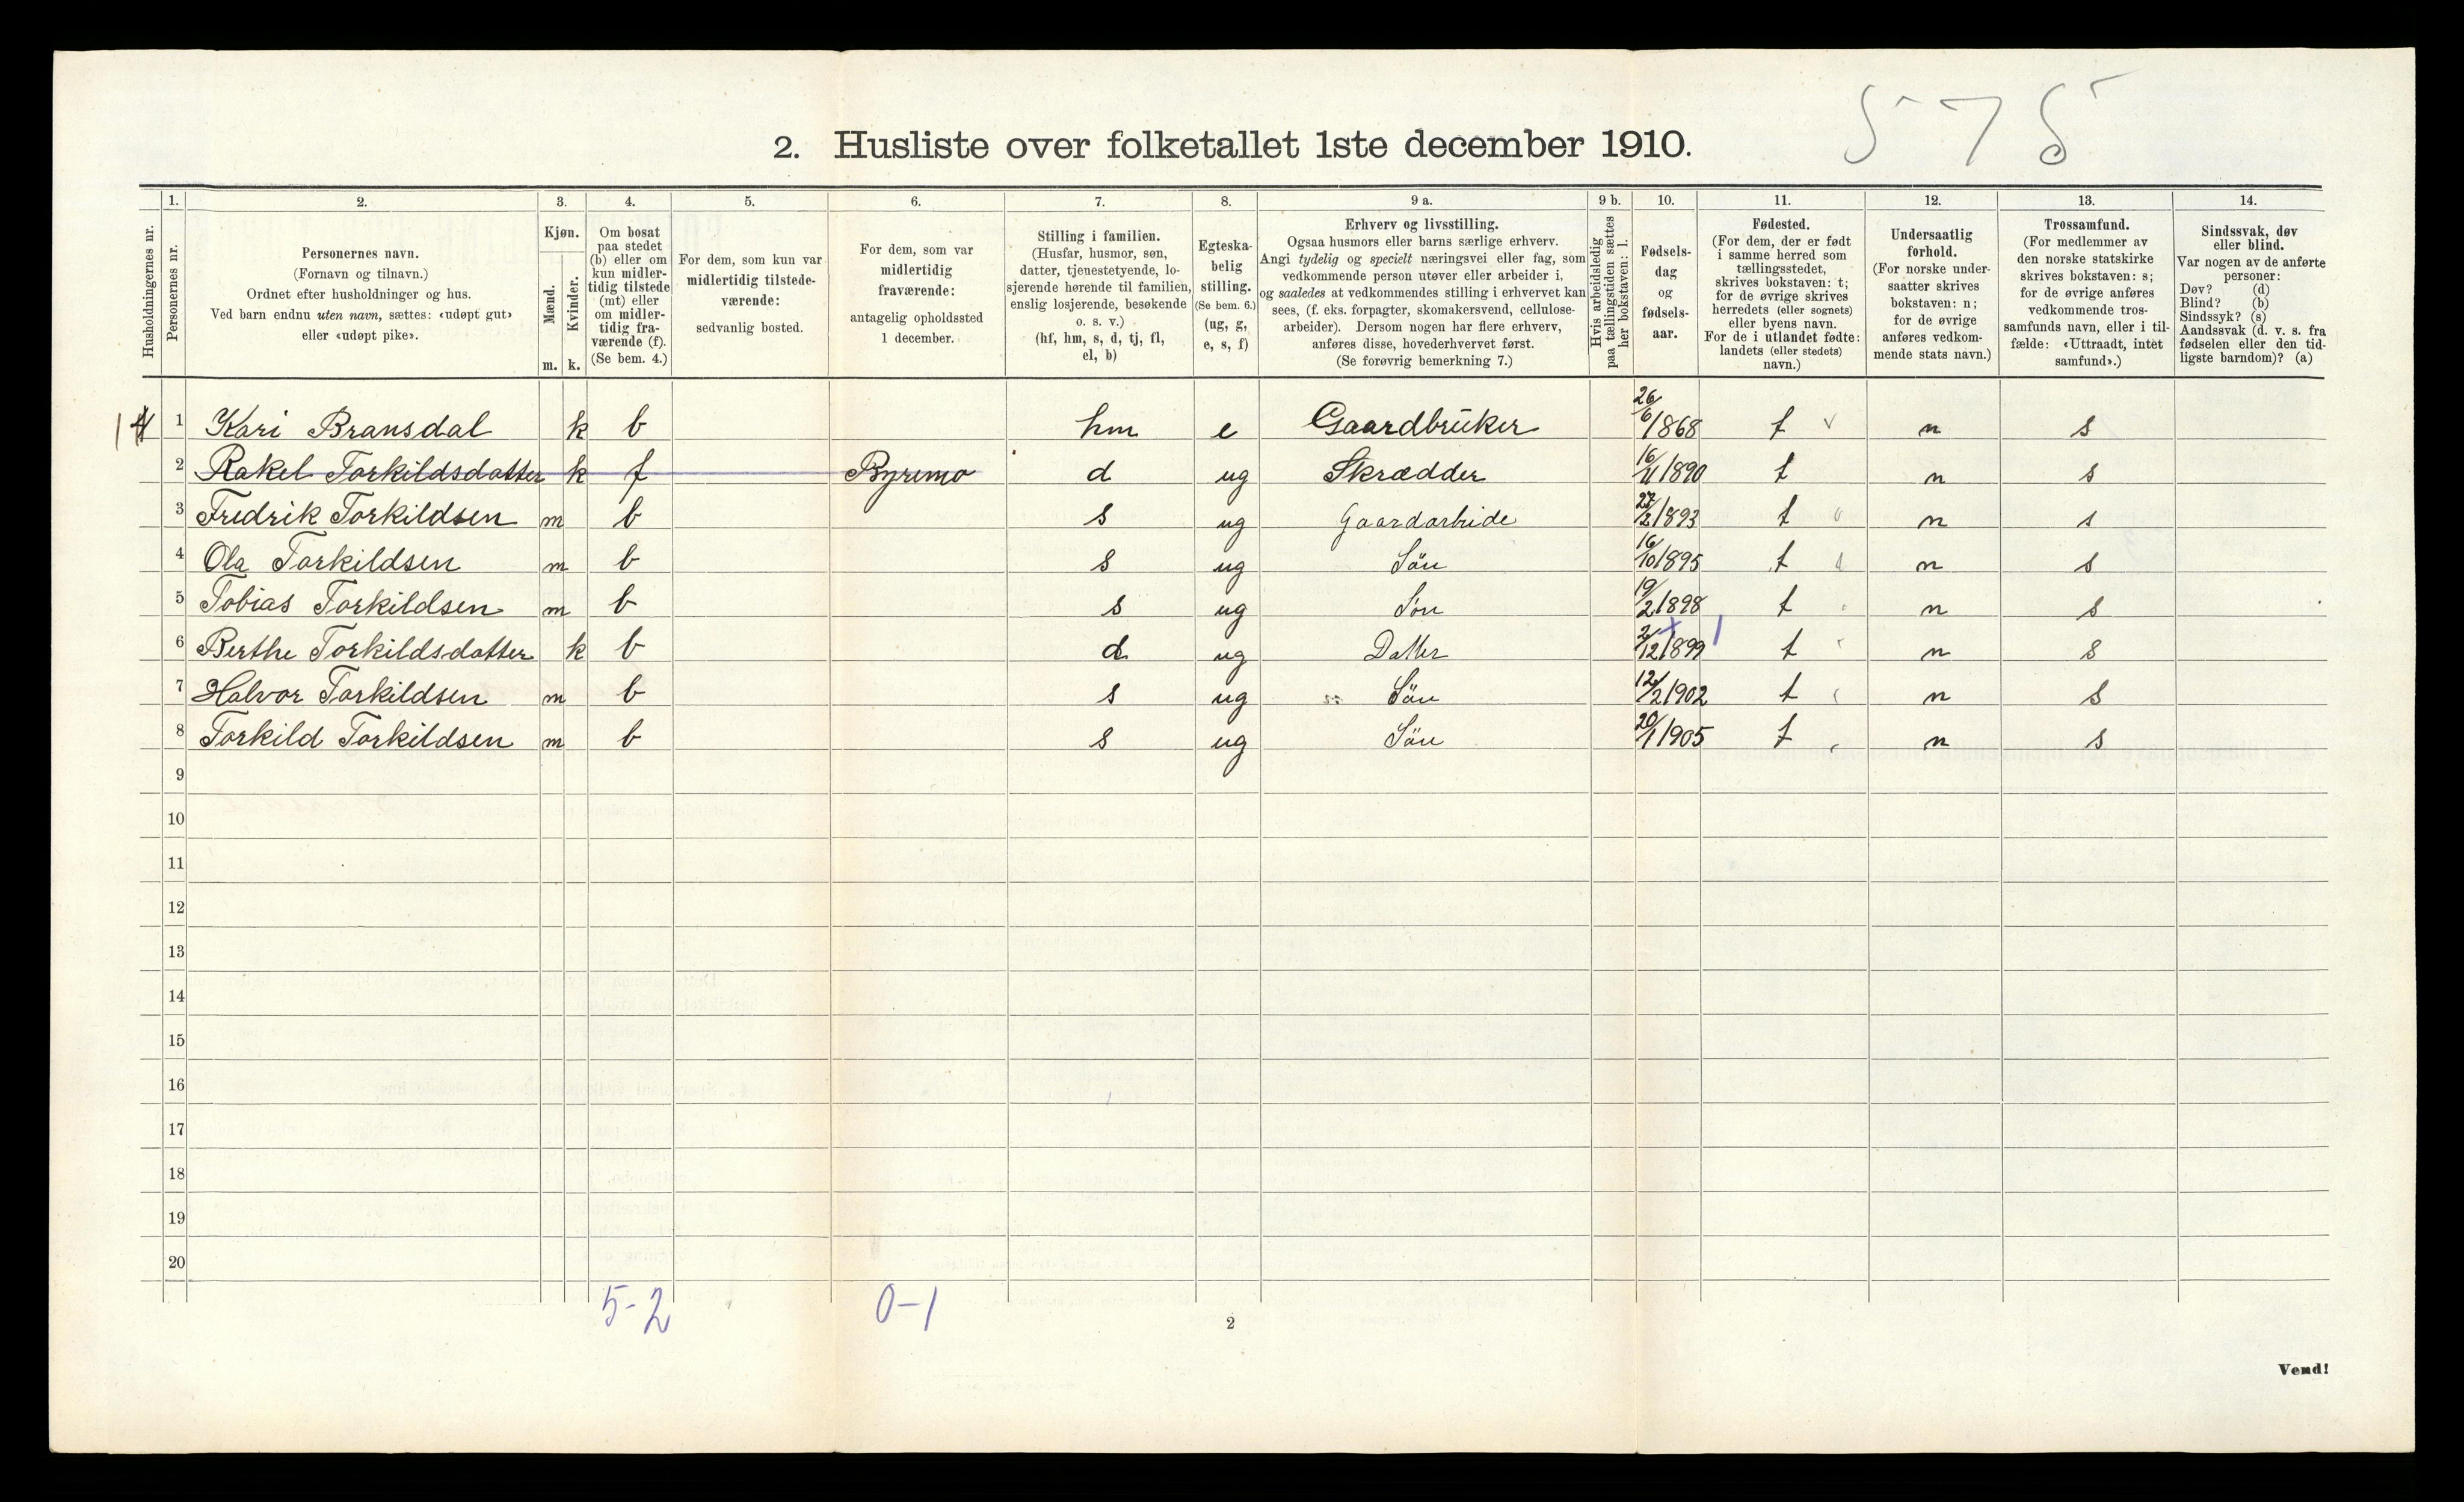 575
2. Husliste over folketallet 1ste december 1910.
Husholdningernes nr.
1. Personernes nr.
2. Personernes navn.
(Fornavn og tilnavn.)
Ordnet efter husholdninger og hus.
Ved barn endnu uten navn, sættes: «udøpt gut»
eller «udøpt pike».
3. Kjøn.
Mænd. m.
Kvinder. k.
4. Om bosat
paa stedet
(b) eller om
kun midler-
tidig tilstede
(mt) eller
om midler-
tidig fra-
værende (f).
(Se bem. 4.)
5. For dem, som kun var
midlertidig tilstede-
værende:
sedvanlig bosted.
6. For dem, som var
midlertidig
fraværende:
antagelig opholdssted
1 december.
7. Stilling i familien.
(Husfar, husmor, søn,
datter, tjenestetyende, lo-
sjerende hørende til familien,
enslig losjerende, besøkende
o. s. v.)
(hf, hm, s, d, tj, fl,
el, b)
8. Egteska-
belig
stilling.
(Se bem. 6.)
(ug, g,
e, s, f)
9 a. Erhverv og livsstilling.
Ogsaa husmors eller barns særlige erhverv.
Angi tydelig og specielt næringsvei eller fag, som
vedkommende person utøver eller arbeider i,
og saaledes at vedkommendes stilling i erhvervet kan
sees, (f. eks. forpagter, skomakersvend, cellulose-
arbeider). Dersom nogen har flere erhverv,
anføres disse, hovederhvervet først.
(Se forøvrig bemerkning 7.)
9 b. Hvis arbeidsledig
paa tællingstiden sættes
her bokstaven: l.
10. Fødsels-
dag
og
fødsels-
aar.
11. Fødested.
(For dem, der er født
i samme herred som
tællingsstedet,
skrives bokstaven: t;
for de øvrige skrives
herredets (eller sognets)
eller byens navn.
For de i utlandet fødte:
landets (eller stedets)
navn.)
12. Undersaatlig
forhold.
(For norske under-
saatter skrives
bokstaven: n;
for de øvrige
anføres vedkom-
mende stats navn.)
13. Trossamfund.
(For medlemmer av
den norske statskirke
skrives bokstaven: s;
for de øvrige anføres
vedkommende tros-
samfunds navn, eller i til-
fælde: «Uttraadt, intet
samfund».)
14. Sindssvak, døv
eller blind.
Var nogen av de anførte
personer:
Døv? (d)
Blind? (b)
Sindssyk? (s)
Aandssvak (d. v. s. fra
fødselen eller den tid-
ligste barndom)? (a)
1 Kari Bransdal k b hm e Gaardbruker 26/6 1868 t n s
2 Rakel Torkildsdatter k f Byremo d ug Skrædder 16/11 1890 t n s
3 Fredrik Torkildsen m b s ug Gaardarbeide 27/2 1893 t n s
4 Ola Torkildsen m b s ug Sön 16/10 1895 t n s
5 Tobias Torkildsen m b s ug Søn 19/2 1898 t n s
6 Berthe Torkildsdatter k b d ug Datter 2/12 1899 t n s
7 Halvor Torkildsen m b s ug Sön 12/2 1902 t n s
8 Torkild Torkildsen m b s ug Sön 20/1 1905 t n s
9
10
11
12
13
14
15
16
17
18
19
20
5-2 0-1
2
Vend!